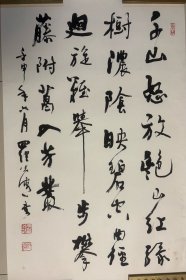 千山怒放艳山红绿
树浓阴映碧空曲径
迴旋难举步攀
藤附葛入芳丛
壬申年六月罗